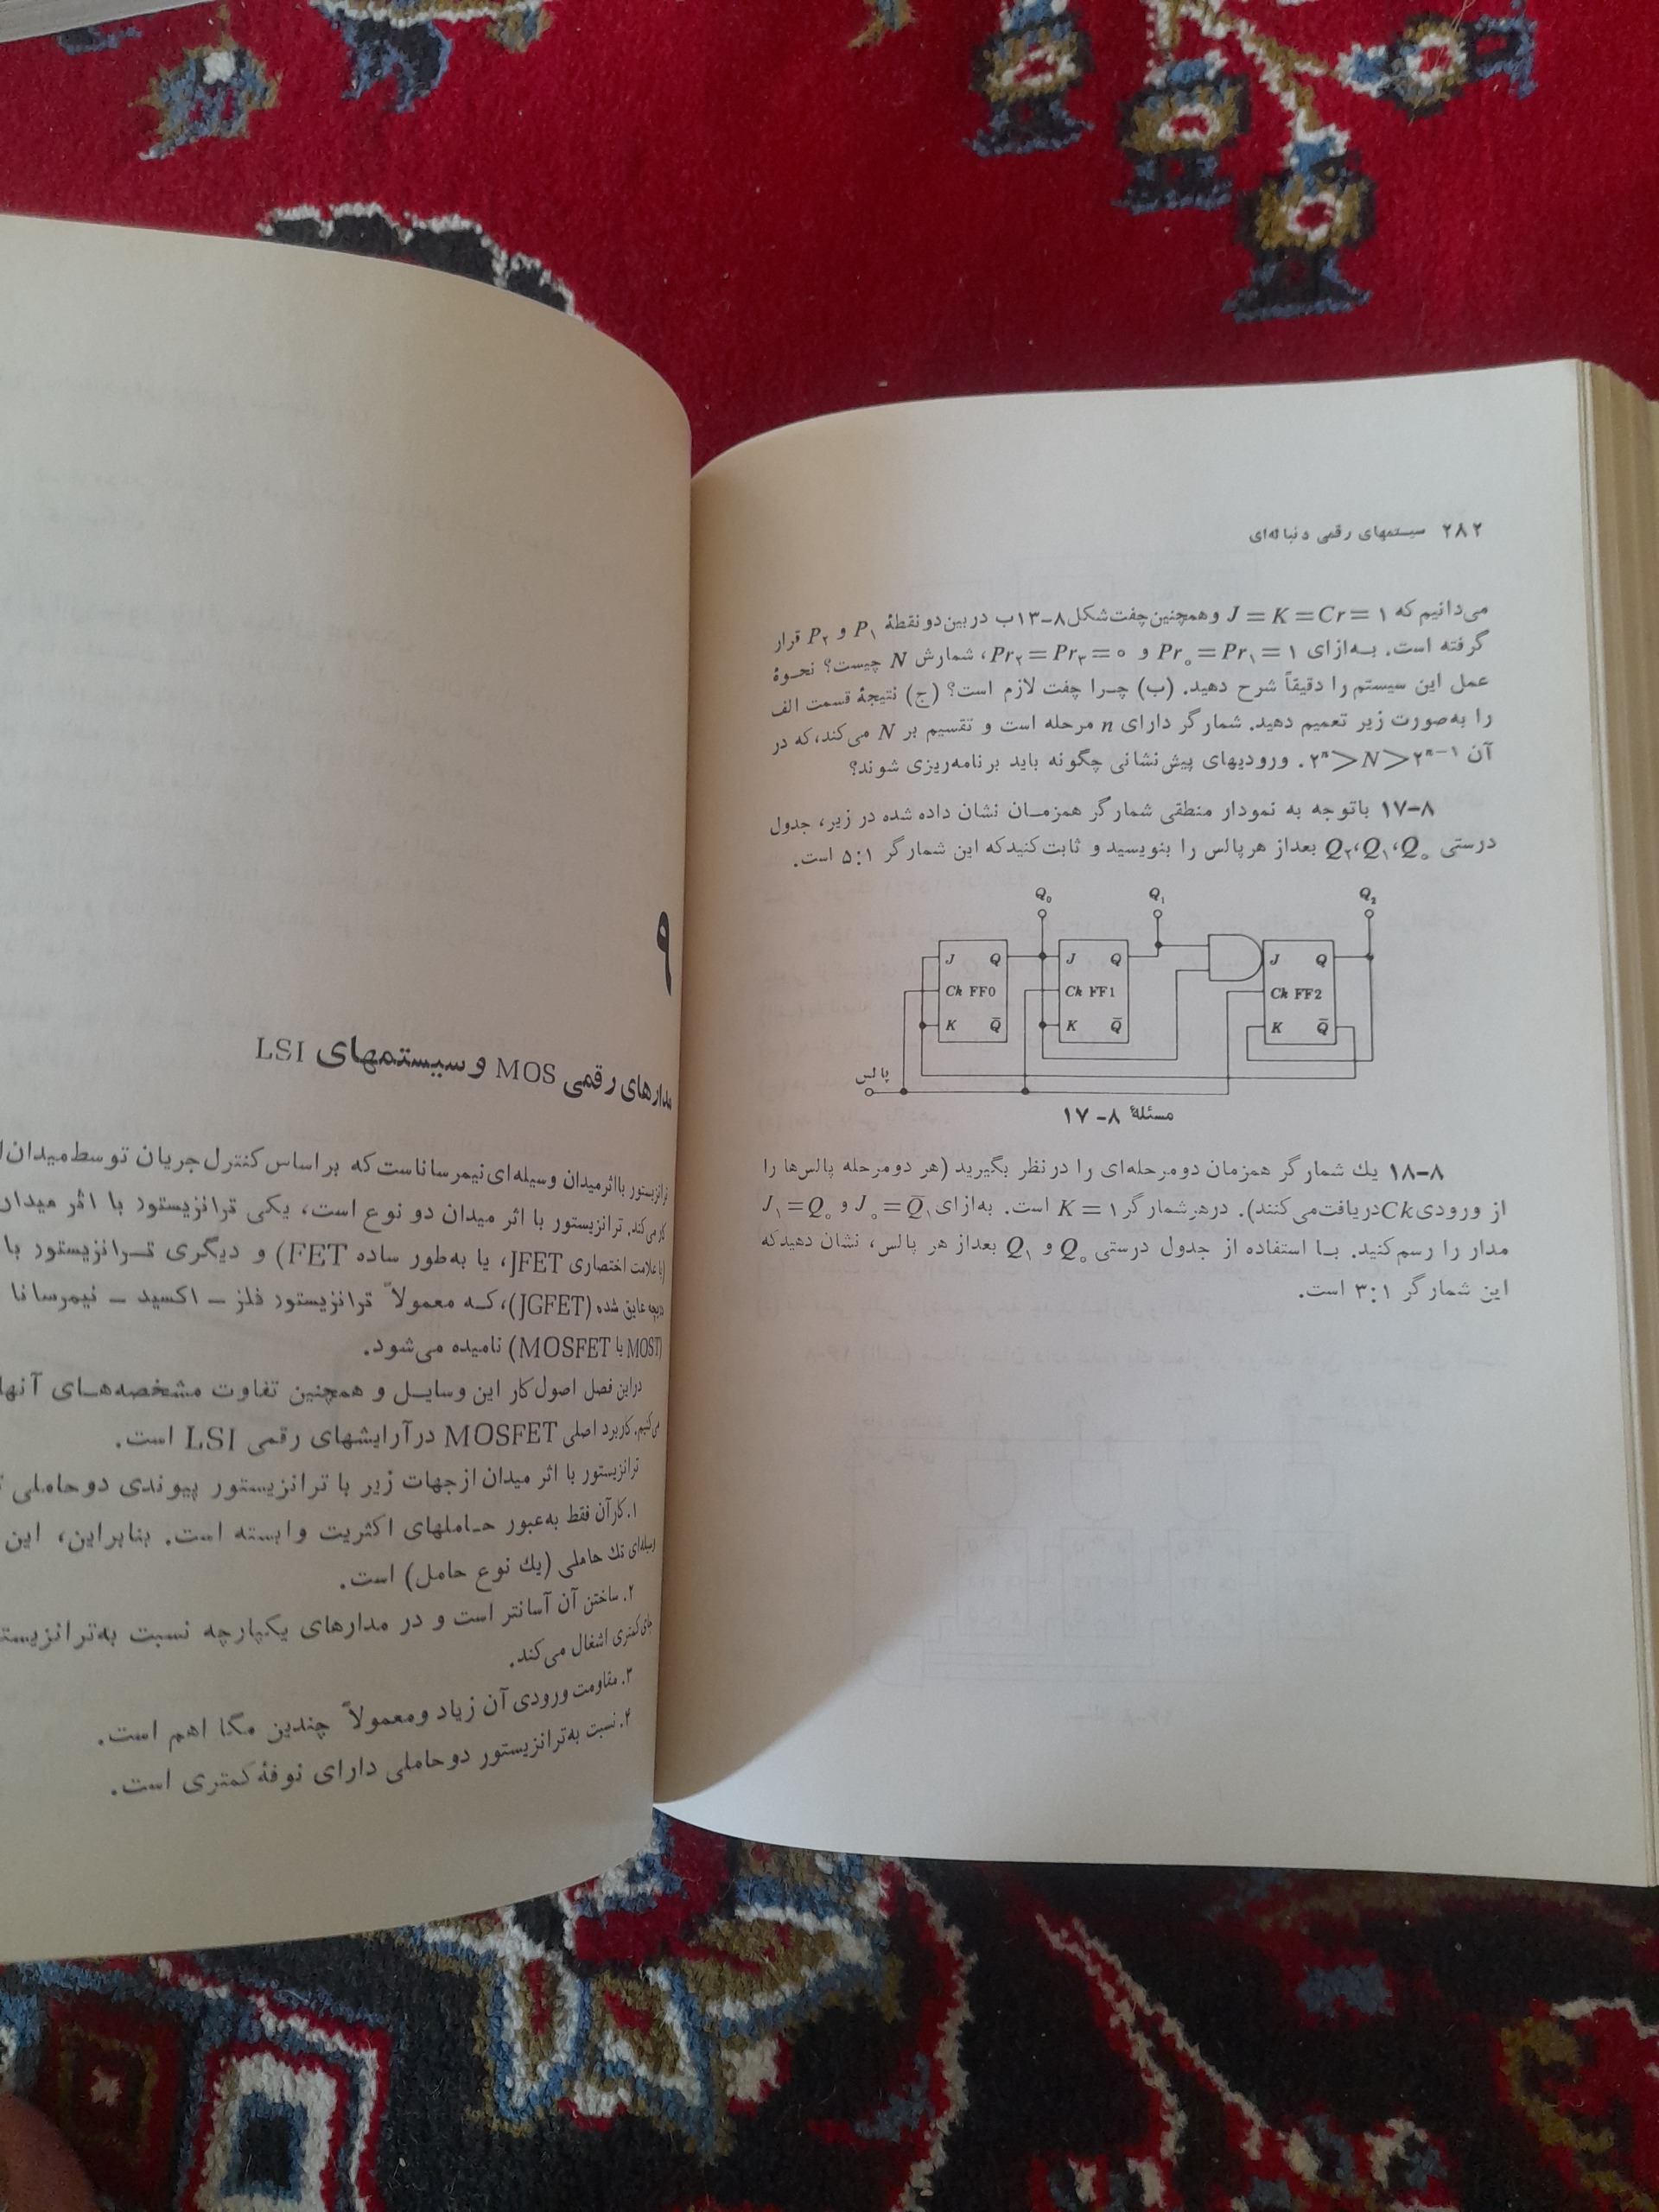 ۲۸۲ سیستمهای رقمی دنباله‌ای
می‌دانیم که J = K = Cr = ۱ و همچنین چفت شکل ۸-۱۳ب در بین دو نقطهٔ P۱ و P۲ قرار
گرفته است. به‌ازای Pr۰ = Pr۱ = ۱ و Pr۲ = Pr۳ = ۰، شمارش N چیست؟ نحوهٔ
عمل این سیستم را دقیقاً شرح دهید. (ب) چرا چفت لازم است؟ (ج) نتیجهٔ قسمت الف
را به‌صورت زیر تعمیم دهید. شمارگر دارای n مرحله است و تقسیم بر N می‌کند، که در
آن ۲ⁿ > N > ۲ⁿ⁻¹. ورودیهای پیش‌نشانی چگونه باید برنامه‌ریزی شوند؟
۸-۱۷ باتوجه به نمودار منطقی شمارگر همزمان نشان داده شده در زیر، جدول
درستی Q۰، Q۱، Q۲ بعداز هر پالس را بنویسید و ثابت کنید که این شمارگر ۵:۱ است.
Q₀ Q₁ Q₂
J Q J Q J Q
Ck FF0 Ck FF1 Ck FF2
K Q̄ K Q̄ K Q̄
پالس
مسئلهٔ ۸-۱۷
۸-۱۸ یك شمارگر همزمان دومرحله‌ای را درنظر بگیرید (هر دومرحله پالس‌ها را
از ورودی Ck دریافت می‌کنند). درهرشمارگر K = ۱ است. به‌ازای J۰ = Q̄۱ و J۱ = Q۰
مدار را رسم کنید. با استفاده از جدول درستی Q۰ و Q۱ بعداز هر پالس، نشان دهیدکه
این شمارگر ۳:۱ است.
۹
مدارهای رقمی MOS و سیستمهای LSI
ترانزیستور بااثرمیدان وسیله‌ای نیمرساناست که براساس کنترل جریان توسط میدان
کار می‌کند. ترانزیستور با اثر میدان دو نوع است، یکی ترانزیستور با اثر میدان
(با علامت اختصاری JFET، یا به‌طور ساده FET) و دیگری ترانزیستور با
دریچه عایق شده (JGFET)، که معمولاً ترانزیستور فلز – اکسید – نیمرسانا
(MOST یا MOSFET) نامیده می‌شود.
دراین فصل اصول کار این وسایل و همچنین تفاوت مشخصه‌های آنها
می‌کنیم. کاربرد اصلی MOSFET درآرایشهای رقمی LSI است.
ترانزیستور با اثر میدان ازجهات زیر با ترانزیستور پیوندی دوحاملی
۱. کارآن فقط به‌عبور حاملهای اکثریت وابسته است. بنابراین، این
وسیله‌ای تك حاملی (یك نوع حامل) است.
۲. ساختن آن آسانتر است و در مدارهای یکپارچه نسبت به‌ترانزیستور
جای کمتری اشغال می‌کند.
۳. مقاومت ورودی آن زیاد ومعمولاً چندین مگا اهم است.
۴. نسبت به‌ترانزیستور دوحاملی دارای نوفهٔ کمتری است.